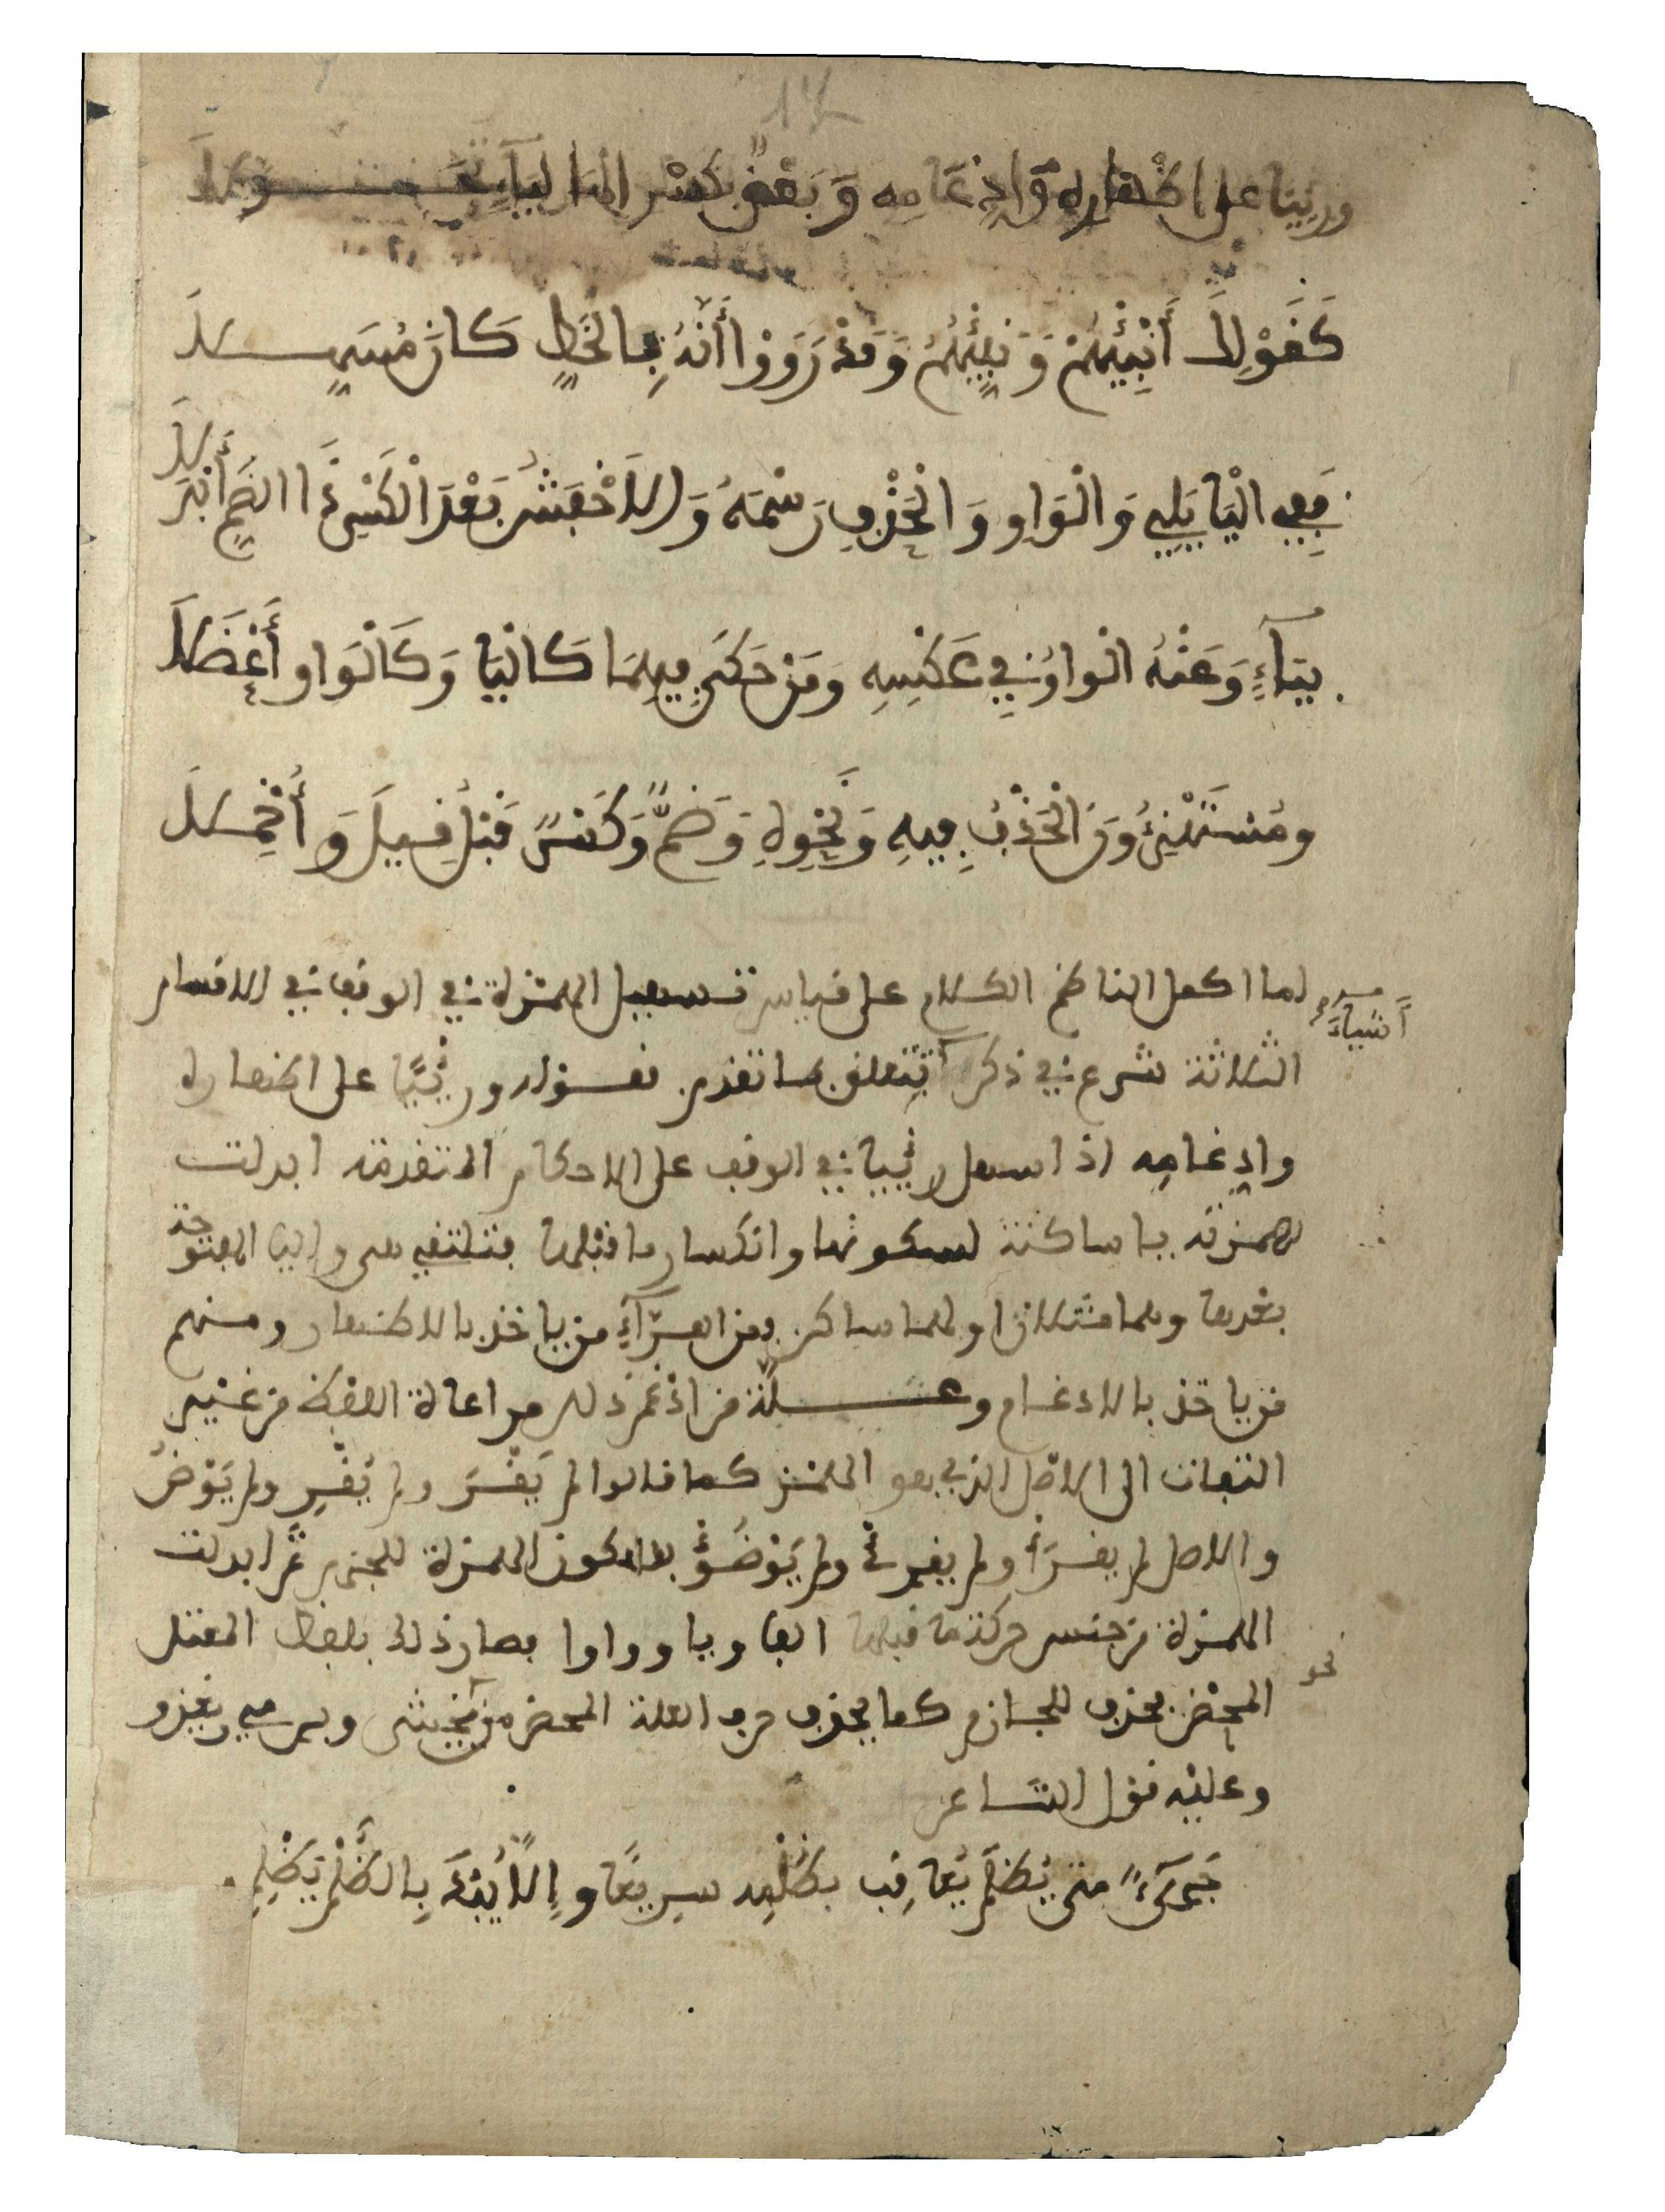 ورئيا على اظهاره وَادِغَامِه وَبَعْضٌ بكسْرِ الها لِيَاءٍ تَحَــــوَّلَا
كَقَوْلِكَ أَنْبِئْهُمْ وَنَبِّئْهُمْ وَقَدْ رَوَوْا أَنَّهُ بِالخَطِّ كَانَ مُسَهِّــلَا
فَفِي الْيَا يَلِي وَالْوَاوِ وَالْحَذْفِ رَسْمَهُ وَالاَخْفَشُ بَعْدَ الْكَسْرِ ذَا الضَّمِّ أَبْدَلَا
بِيَاءٍ وَعَنْهُ الْوَاوُ فِي عَكْسِهِ وَمَنْ حَكَى فِيهِمَا كَالْيَا وَكَالْوَاوِ أَعْضَلَا
ومُسْتَهْزِءُونَ الْحَذْفُ فِيهِ وَنَحْوِهِ وَضَمٌّ وَكَسْرٌ قَبْلُ قِيلَ وَأُخْمِــلَا
لما اكمل الناظم الكلام على قياس تسهيل الهمزة في الوقف في الاقسام
أَشْيَاءَ
الثلاثة شرع في ذكر تتعلق بما تقدم فقوله ورِئْيًا على اظهاره
وادغامِه اذا سهل رئيا في الوقف على الاحكام المتقدمة ابدلت
همزته يا ساكنة لسكونها وانكسار ما قبلها فتلتقي هي واليا المفتوحة
بعدها وهما مثلان اولهما ساكن فمن القرّاءِ من ياخذ بالاظهار ومنهم
من ياخذ بالادغام وعــلة من ادغم ذلك مراعاة اللفظ من غير
التفات الى الاصل الذي هو الهمز كما قالوا لم يَقْرَ ولم يُقْرِ ولم يَوْضُ
والاصل لم يقرَأْ ولم يقرِئْ ولم يَوْضُؤْ بسكون الهمزة للجزم ثم ابدلت
الهمزة من جنس حركة ما قبلها الفا ويا وواوا فصار ذلك بلفظ المعتل
المحض فحذف للجازم كما يحذف حرف العلة المحض من نحو يخشى ويرمي ويغزو
وعليه قول الشاعر
جَرِىَءٌ متى يُظْلَمْ يُعَاقِب بظُلْمِه سرِيعًا وإِلَّا يُبْدَ بِالظُّلْمِ يَظْلِمِ